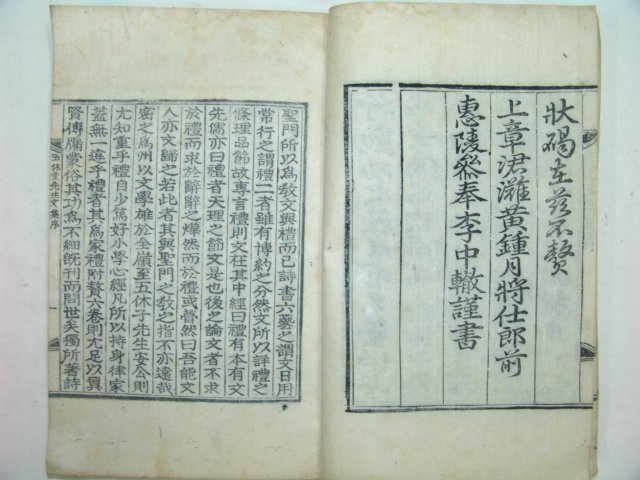 狀碣在玆不贅
上章涒灘黃鍾月將仕郎前
惠陵參奉李中轍謹書
聖門所以爲敎文與禮而已詩書六藝之謂文日用
常行之謂禮二者雖有博約之分然文所以詳禮之
條理品節故專言禮則文在其中經曰禮有本有文
先儒亦曰禮者天理之節文是也後之論文者不求
於禮而求於辭辭之燁然而於禮或瞢然曰吾能文
人亦文歸之若此者其與聖門之敎之指不亦遠哉
密之爲州以文學雄於全嶺至五休子先生安公則
尤知重乎禮自少篤好小學心經凡所以持身律家
蓋無一違乎禮者其爲家禮附贅六卷則尤足以翼
賢傳牖蒙俗其功爲不細旣刊而問世矣獨所著詩
五休先生文集序